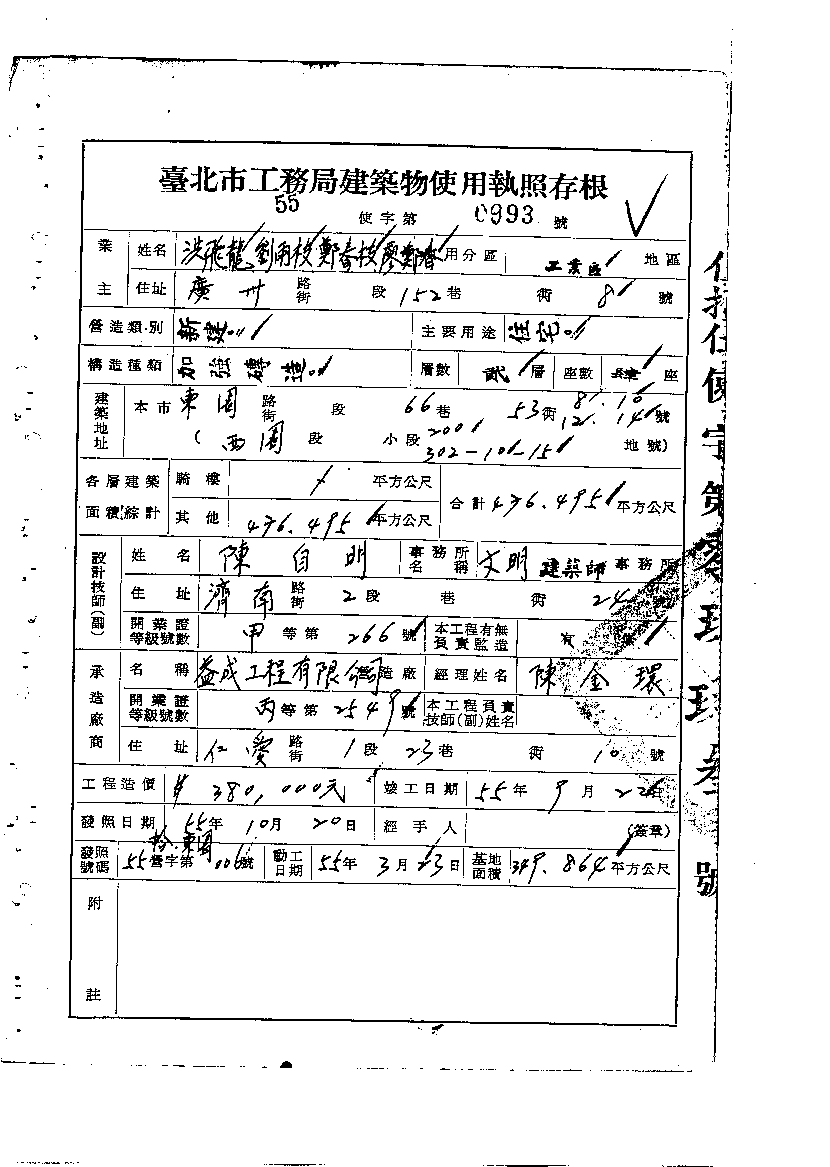 臺北市工務局建築物使用執照存根
55 使字第 0993 號
業主 姓名 洪飛龍 劉雨枝 鄭春枝 廖鄭 用分區 工業區 地區
住址 廣州 路街 段 152巷 衖 8 號
營造類別 新建 主要用途 住宅
構造種類 加強磚造 層數 貳層 座數 座
建築地址 本市 東園 路街 段 66巷 53衖 8. 10 12. 14 號
(西園段 小段 200 302-10-15 地號)
各層建築面積綜計 騎樓 平方公尺 合計 476.495 平方公尺
其他 476.495 平方公尺
設計技師(副) 姓名 陳自明 事務所名稱 文明建築師事務所
住址 濟南 路街 2段 巷 衖 24 號
開業證等級號數 甲等第 266 號 本工程有無負責監造 有
承造廠商 名稱 益成工程有限公司 造廠 經理姓名 陳金環
開業證等級號數 丙等第 2549 號 本工程負責技師(副)姓名
住址 仁愛 路街 1段 23巷 衖 10 號
工程造價 380,000元 竣工日期 55年 9月 22日
發照日期 55年 10月 20日 經手人 (簽章)
發照號碼 55營字第 006 號 動工日期 55年 3月 23日 基地面積 349.864 平方公尺
附註
使字第
號